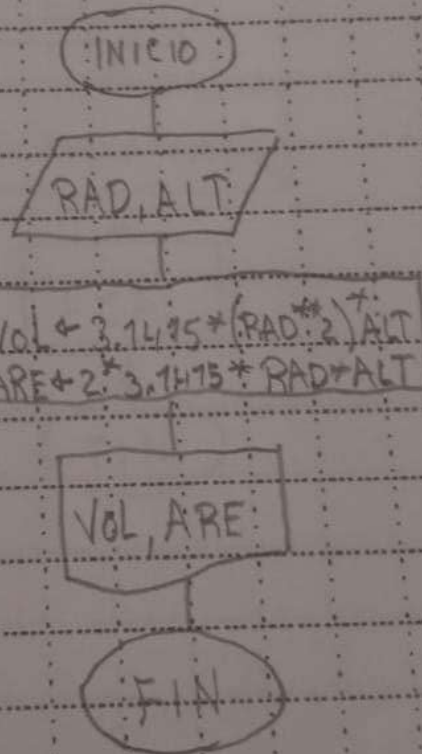 INICIO
RAD, ALT
VOL ← 3.1415*(RAD**2)*ALT
ARE ← 2*3.1415* RAD*ALT
VOL, ARE
FIN